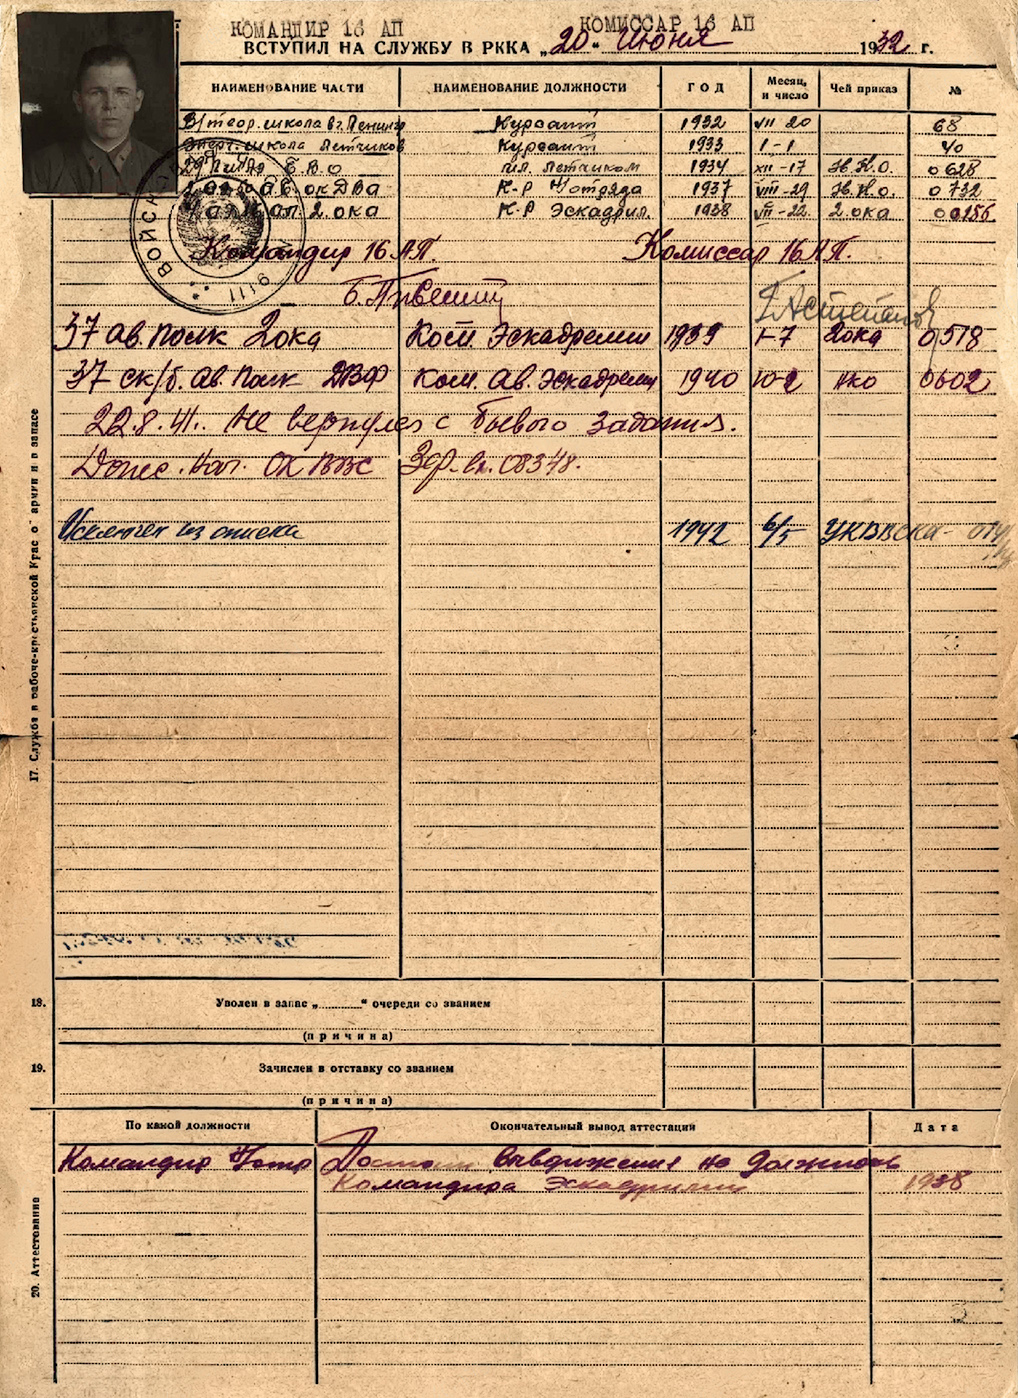 КОМАНДИР 16 АП КОМИССАР 16 АП
ВСТУПИЛ НА СЛУЖБУ В РККА „20“ Июня 1932 г.
НАИМЕНОВАНИЕ ЧАСТИ НАИМЕНОВАНИЕ ДОЛЖНОСТИ ГОД Месяц, и число Чей приказ №
В/теор. школа в г. Ленингр Курсант 1932 VII-20 68
школа Летчиков Курсант 1933 1-1 40
Б.В.О мл. летчиком 1934 XII-17 Н.К.О. 0628
ав. ок ДВА К-Р отряда 1937 VIII-29 Н.К.О. 0732
2. ока К-Р Эскадрил. 1938 VII-22 2. ока 00155
Командир 16 АП. Комиссар 16 АП.
37 ав. полк 2 ока Ком. Эскадрелии 1939 1-7 2 ока 0518
37 ск/б. ав. Полк ДВФ Ком. Ав. Эскадрелии 1940 10-2 НКО 0602
22.8.41. Не вернулся с боевого задания.
Донес. Нач. ОК ВВС Зф. вх. 08378.
Исключен из списка 1942 6/5
17. Служба в рабоче-крестьянской Крас о армии и в запасе
ВОЙСК 9111
18. Уволен в запас „......“ очереди со званием
(причина)
19. Зачислен в отставку со званием
(причина)
20. Аттестование
По какой должности Окончательный вывод аттестации Дата
Командир Достоин выдвижения на должность
Командира Эскадрилии 1938